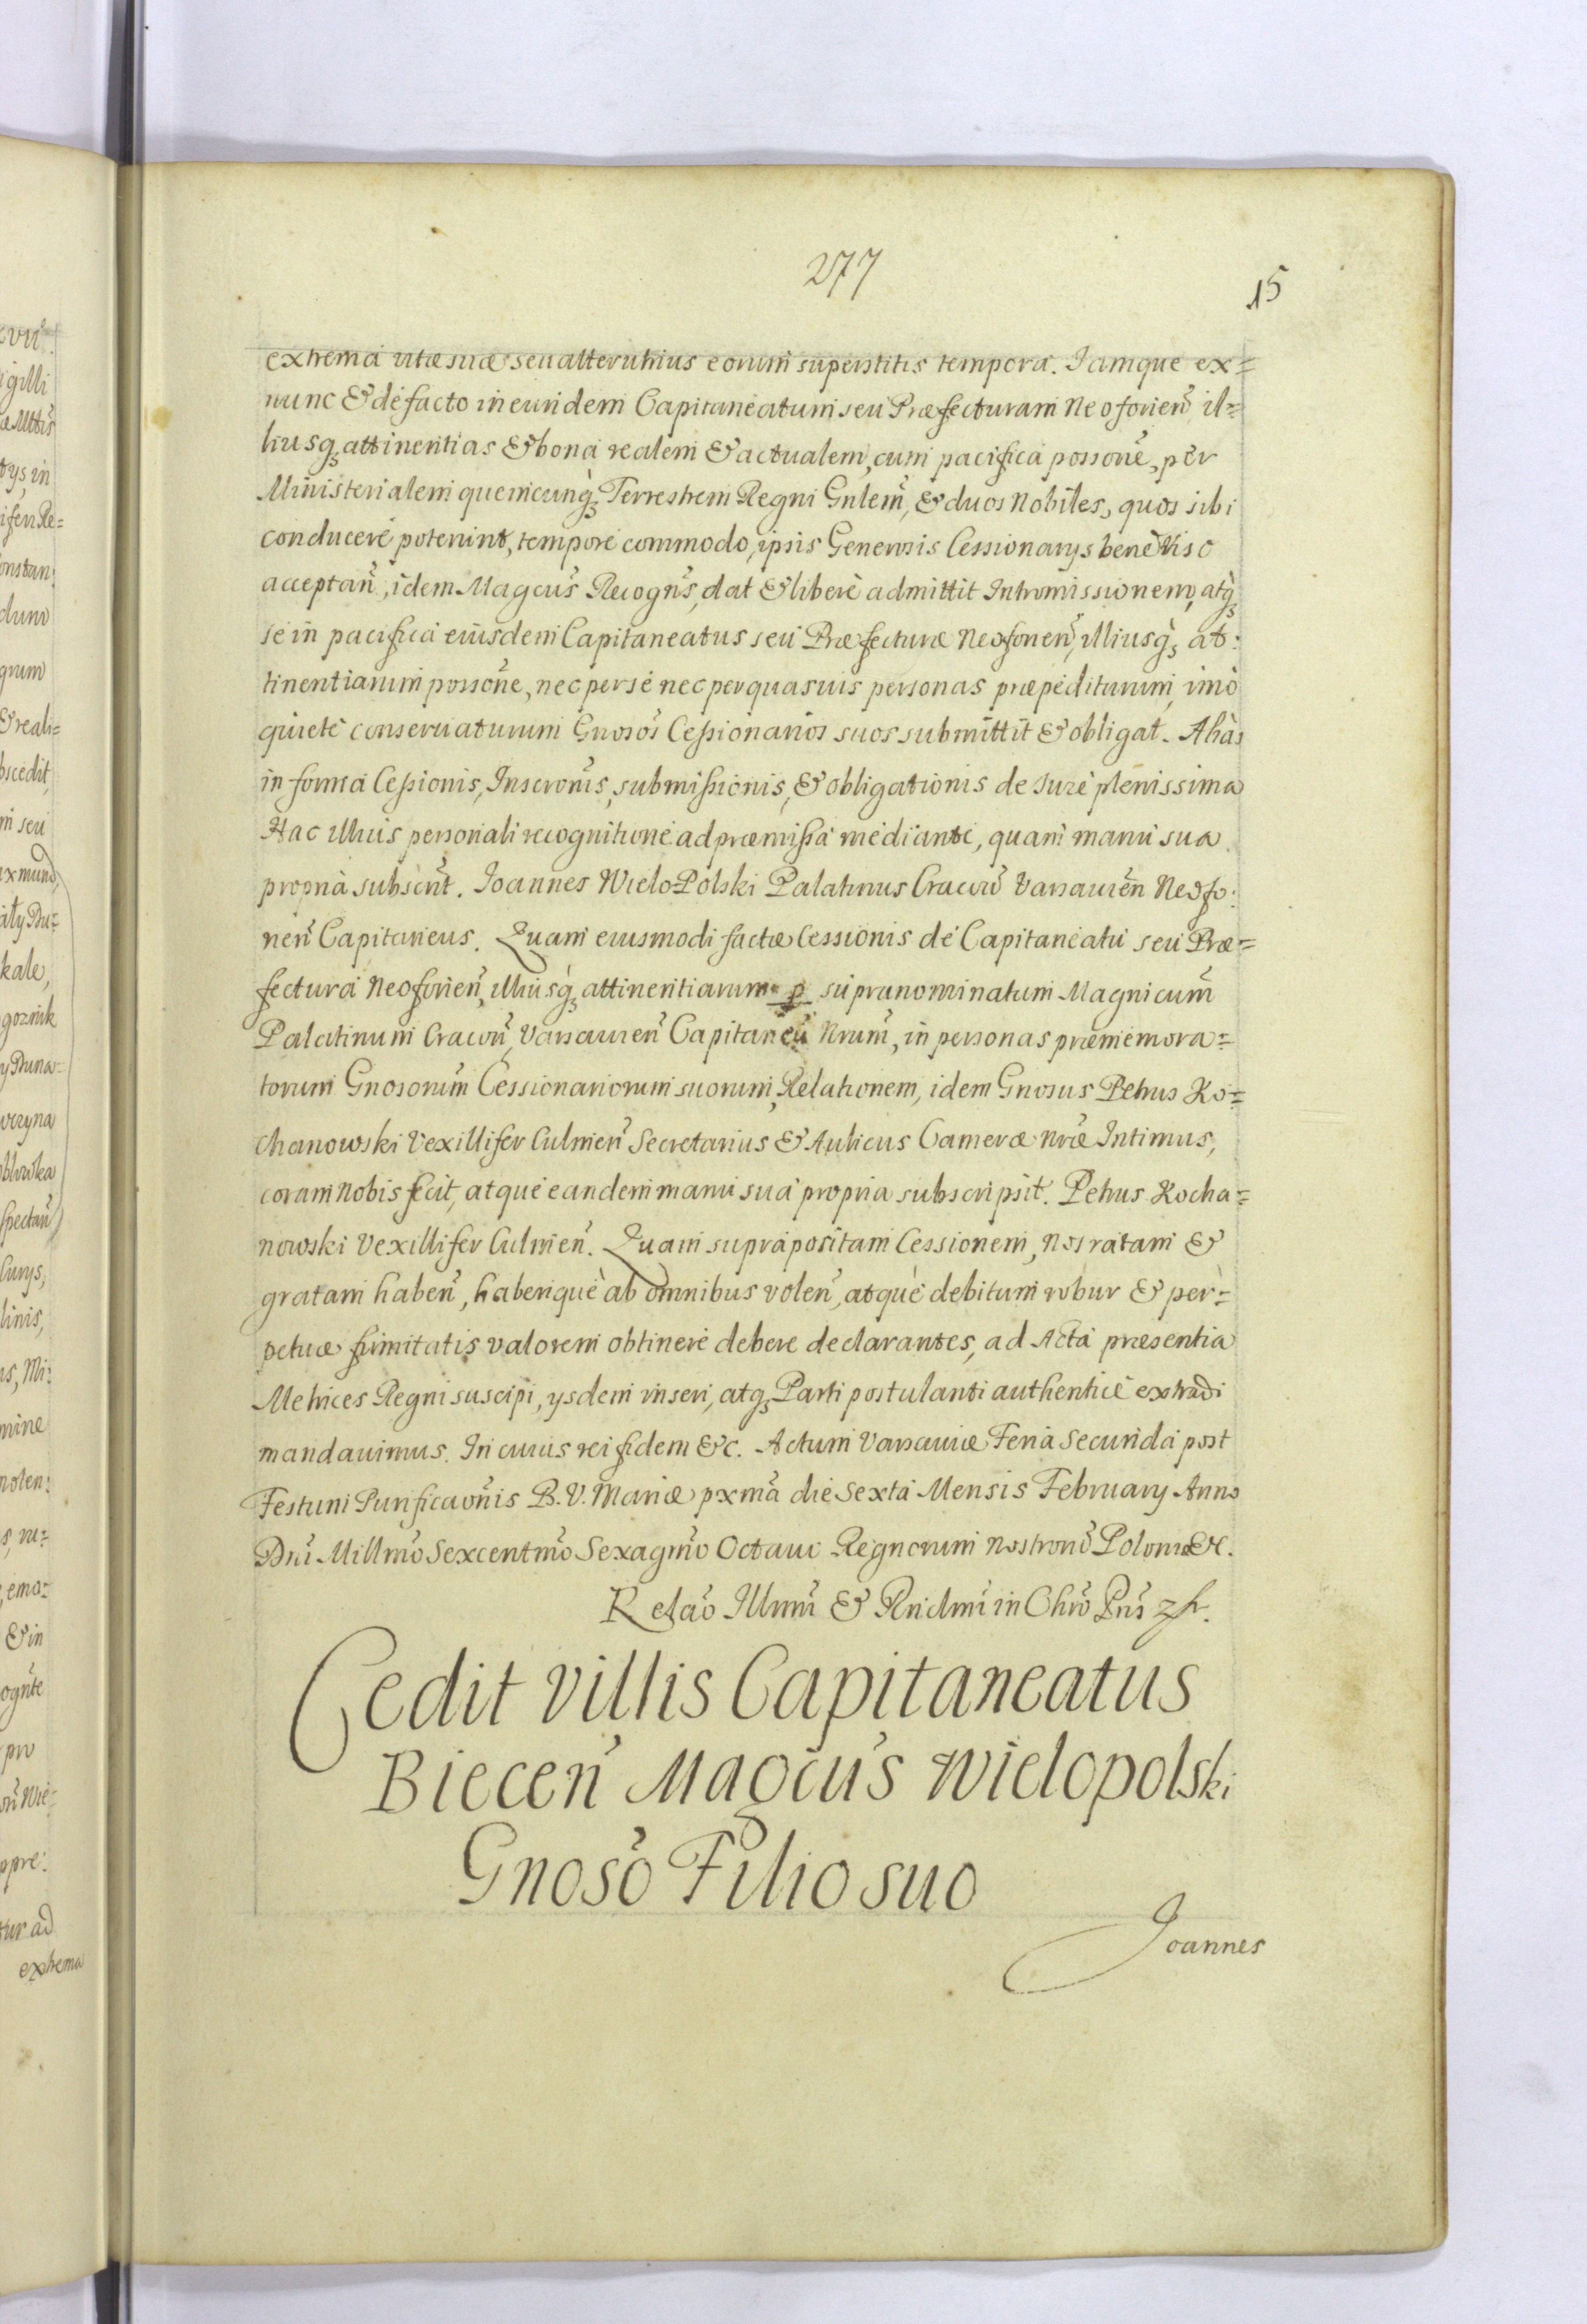 277
15
extrema vitæ suæ seu alterutrius eorum superstitis tempora. Iamque ex=
nunc & de facto in eundem Capitaneatum seu Præfecturam Neoforien̄, il=
liusq; attinentias & bona realem & actualem, cum pacifica possone, per
Ministerialem quemcunq; Terrestrem Regni Gnlem̄, & duos Nobiles, quos sibi
conducere poterint, tempore commodo, ipsis Generosis Cessionarys benè viso
acceptan̄, idem Magcus Recogn̄s, dat & liberè admittit Intromissionem, atq;
se in pacifica eiusdem Capitaneatus seu Præfecturæ Neoforien̄, illiusq; at:
tinentiarum possone, nec per se nec per quasuis personas præpediturum, imò
quietè conseruaturum Gnosos Cessionarios suos submittit & obligat. Aliàs
in forma Cessionis, Inscronis, submissionis, & obligationis de Iure plenissima
Hac illius personali recognitione ad præmissa mediante, quam manu sua
propria subscrit. Ioannes WieloPolski Palatinus Cracoū Varsauien̄ Neofo:
rien̄ Capitaneus. Quam eiusmodi factæ Cessionis de Capitaneatu seu Præ=
fectura Neoforien̄, illiusq; attinentiarum p supranominatum Magnicum̄
Palatinum Cracoū, Varsauien̄ Capitaneū Nrum̄, in personas præmemora=
torum Gnosorum Cessionariorum suorum, Relationem, idem Gnosus Petrus Ko=
chanowski Vexillifer Culmen̄ Secretarius & Aulicus Cameræ Nræ Intimus,
coram Nobis fecit, atque eandem manu sua propria subscripsit. Petrus Kocha=
nowski Vexillifer Culmen̄. Quam suprapositam Cessionem, Nos ratam &
gratam haben̄, haberiquè ab omnibus volen̄, atquè debitum robur & per=
petuæ firmitatis valorem obtinere debere declarantes, ad Acta præsentia
Metrices Regni suscipi, ysdem inseri, atq; Parti postulanti authenticè extradi
mandauimus. In cuius rei fidem &c. Actum Varsauiæ Feria Secunda post
Festum Purificaōnis B. V. Mariæ pxma die Sexta Mensis February Anno
Dni Millmo Sexcentmo Sexagmo Octauo Regnorum Nostrorū Poloniæ &c.
Relao Illmi & Rndmi in Chro Pris
Cedit villis Capitaneatus
Biecen̄ Magcus Wielopolski
Gnoso Filio suo
Joannes